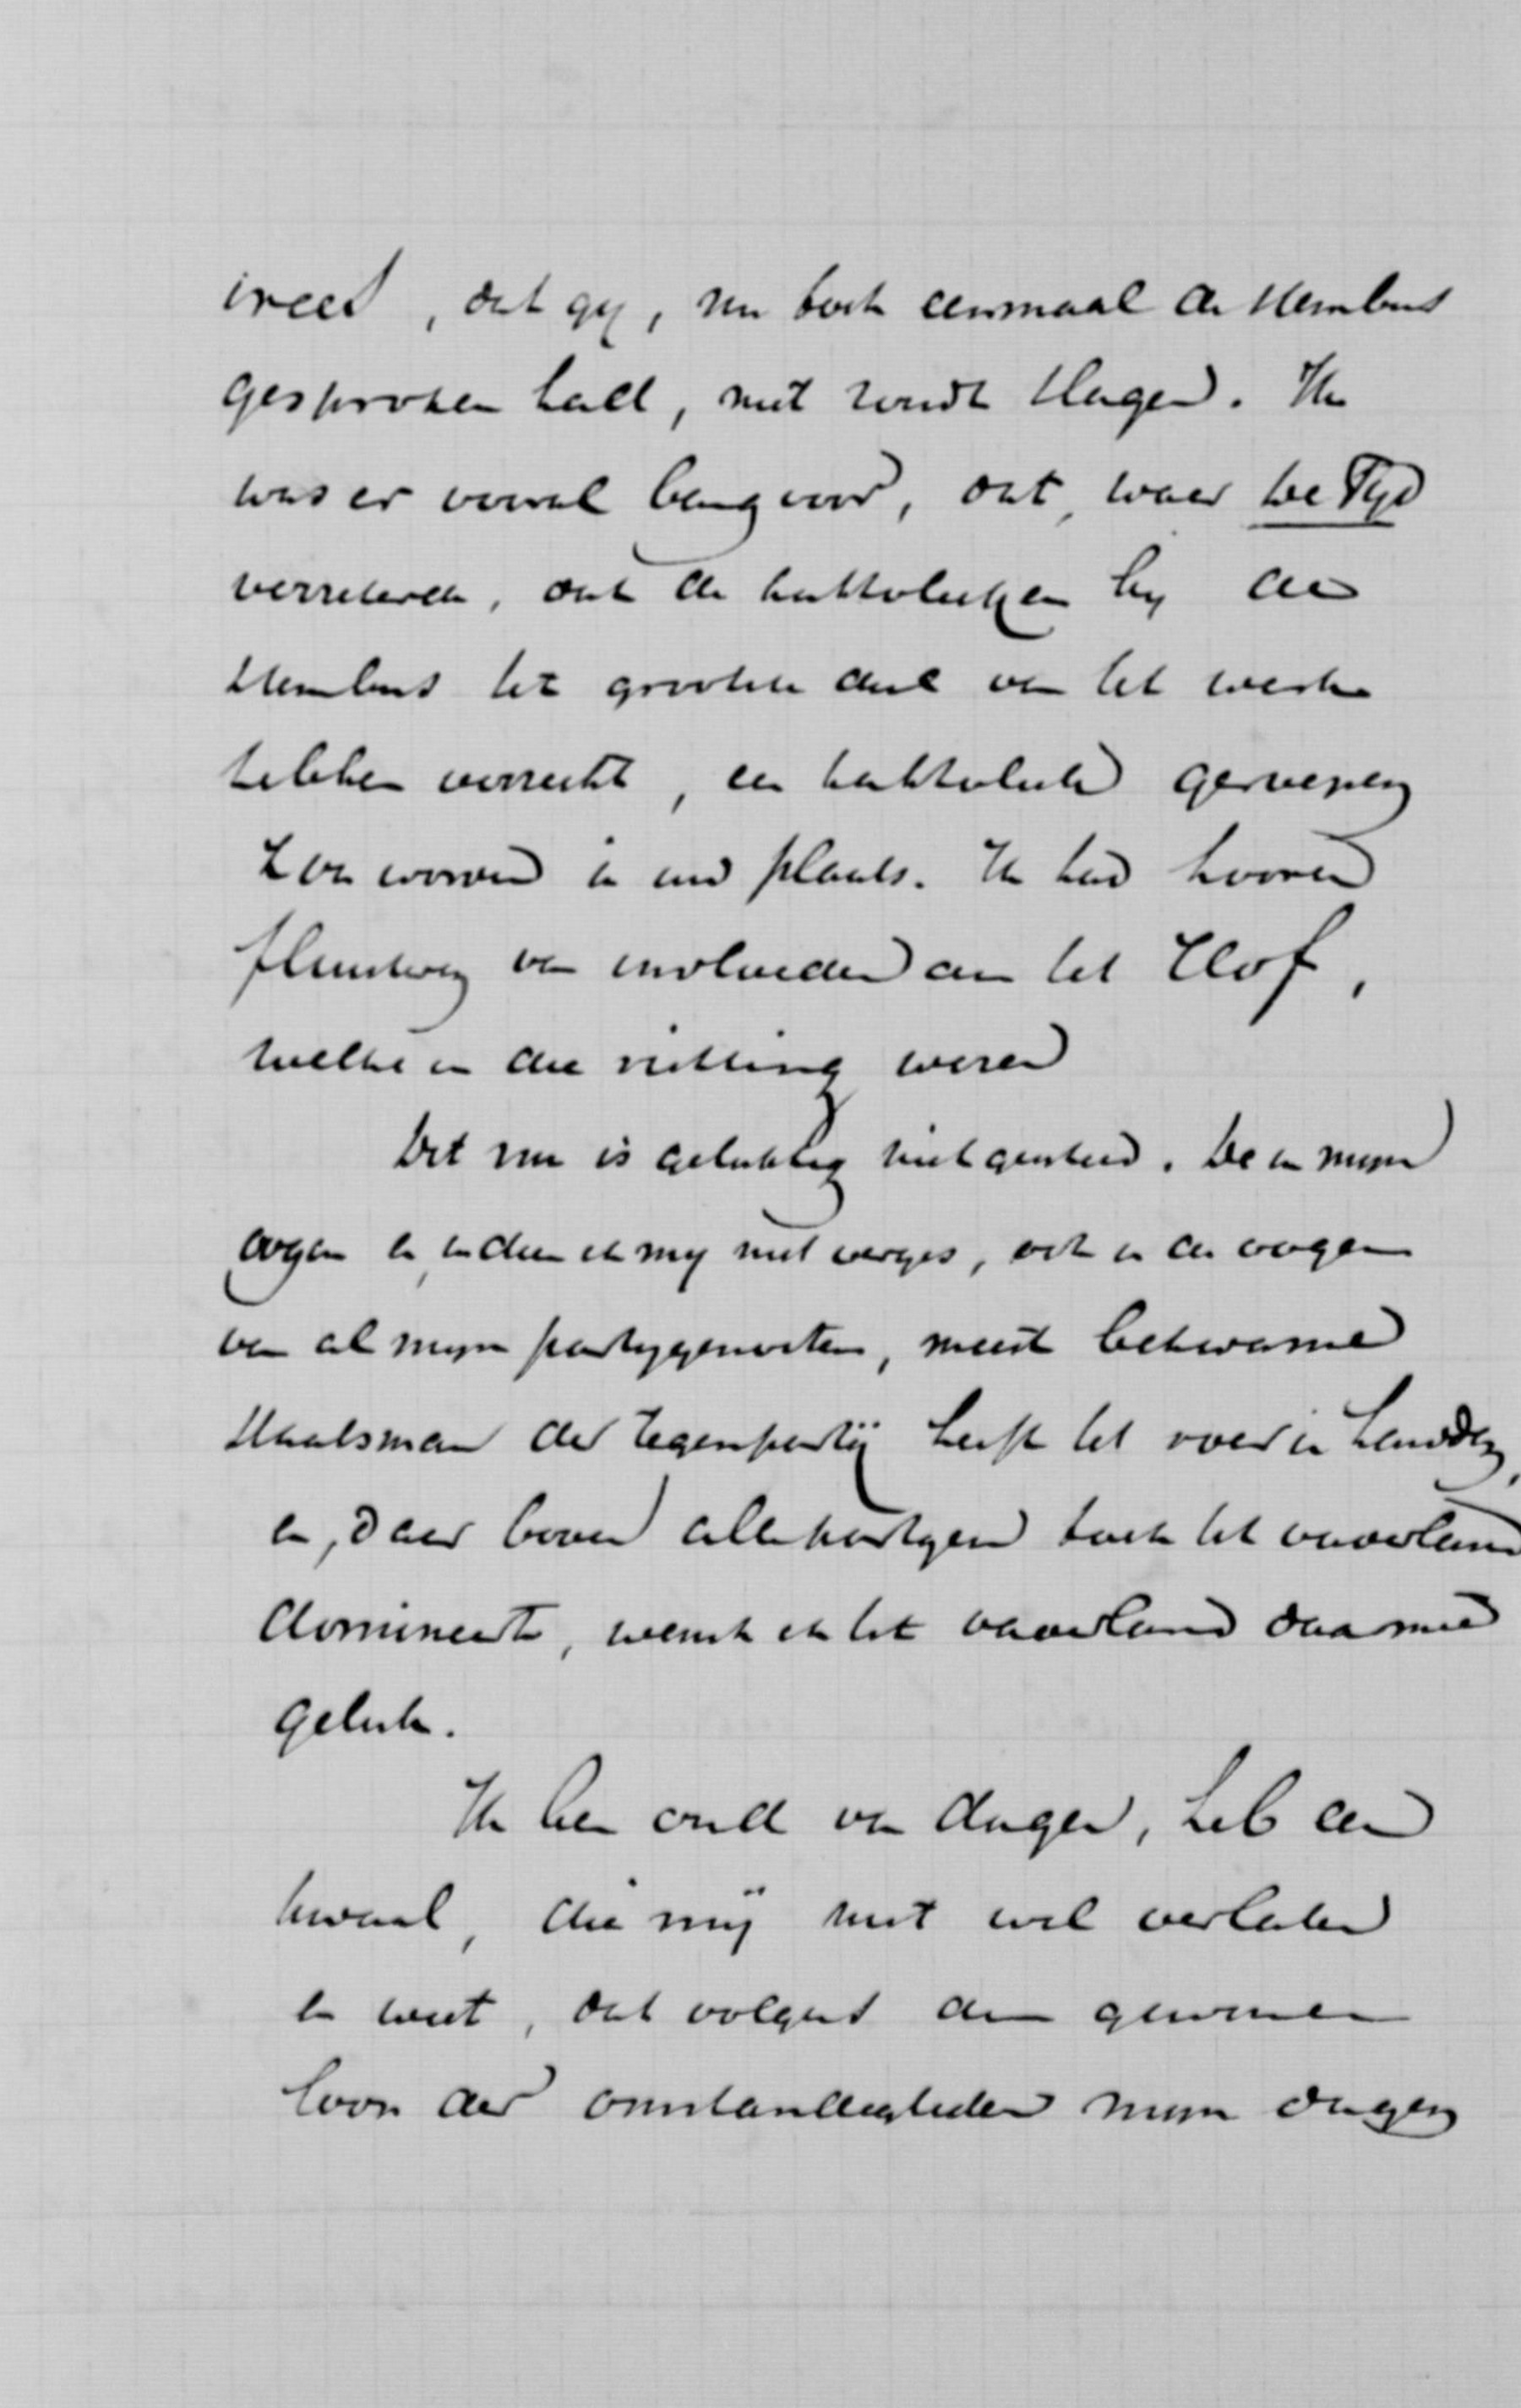 vreesd, dat gy, nu toch eenmaal de stembus
gesproken had, niet zoudt slagen. Ik
was er vooral bang voor, dat, waar de Tyd
verzekerde, dat de katholieken by de
stembus het grootste deel van het werk
hebben verricht, een katholiek
zou worden in uw plaats. Ik had hooren
van invloeden aan het Hof,
welke in die richting waren
Dit nu is gelukkig niet gebeurd. De in myne
oogen en, indien ik my niet vergis, ook in de oogen
van al myn partygenooten, meest bekwame
staatsman der tegenpartij heeft het roer in handen,
en, daar boven alle partyen toch het vaderland
domineert, wensch ik het vaderland daarmee
geluk.
Ik ben oud van dagen, heb een
kwaal, die mij niet wil verlaten
en weet, dat volgens den gewonen
loop der omstandigheden myne dagen